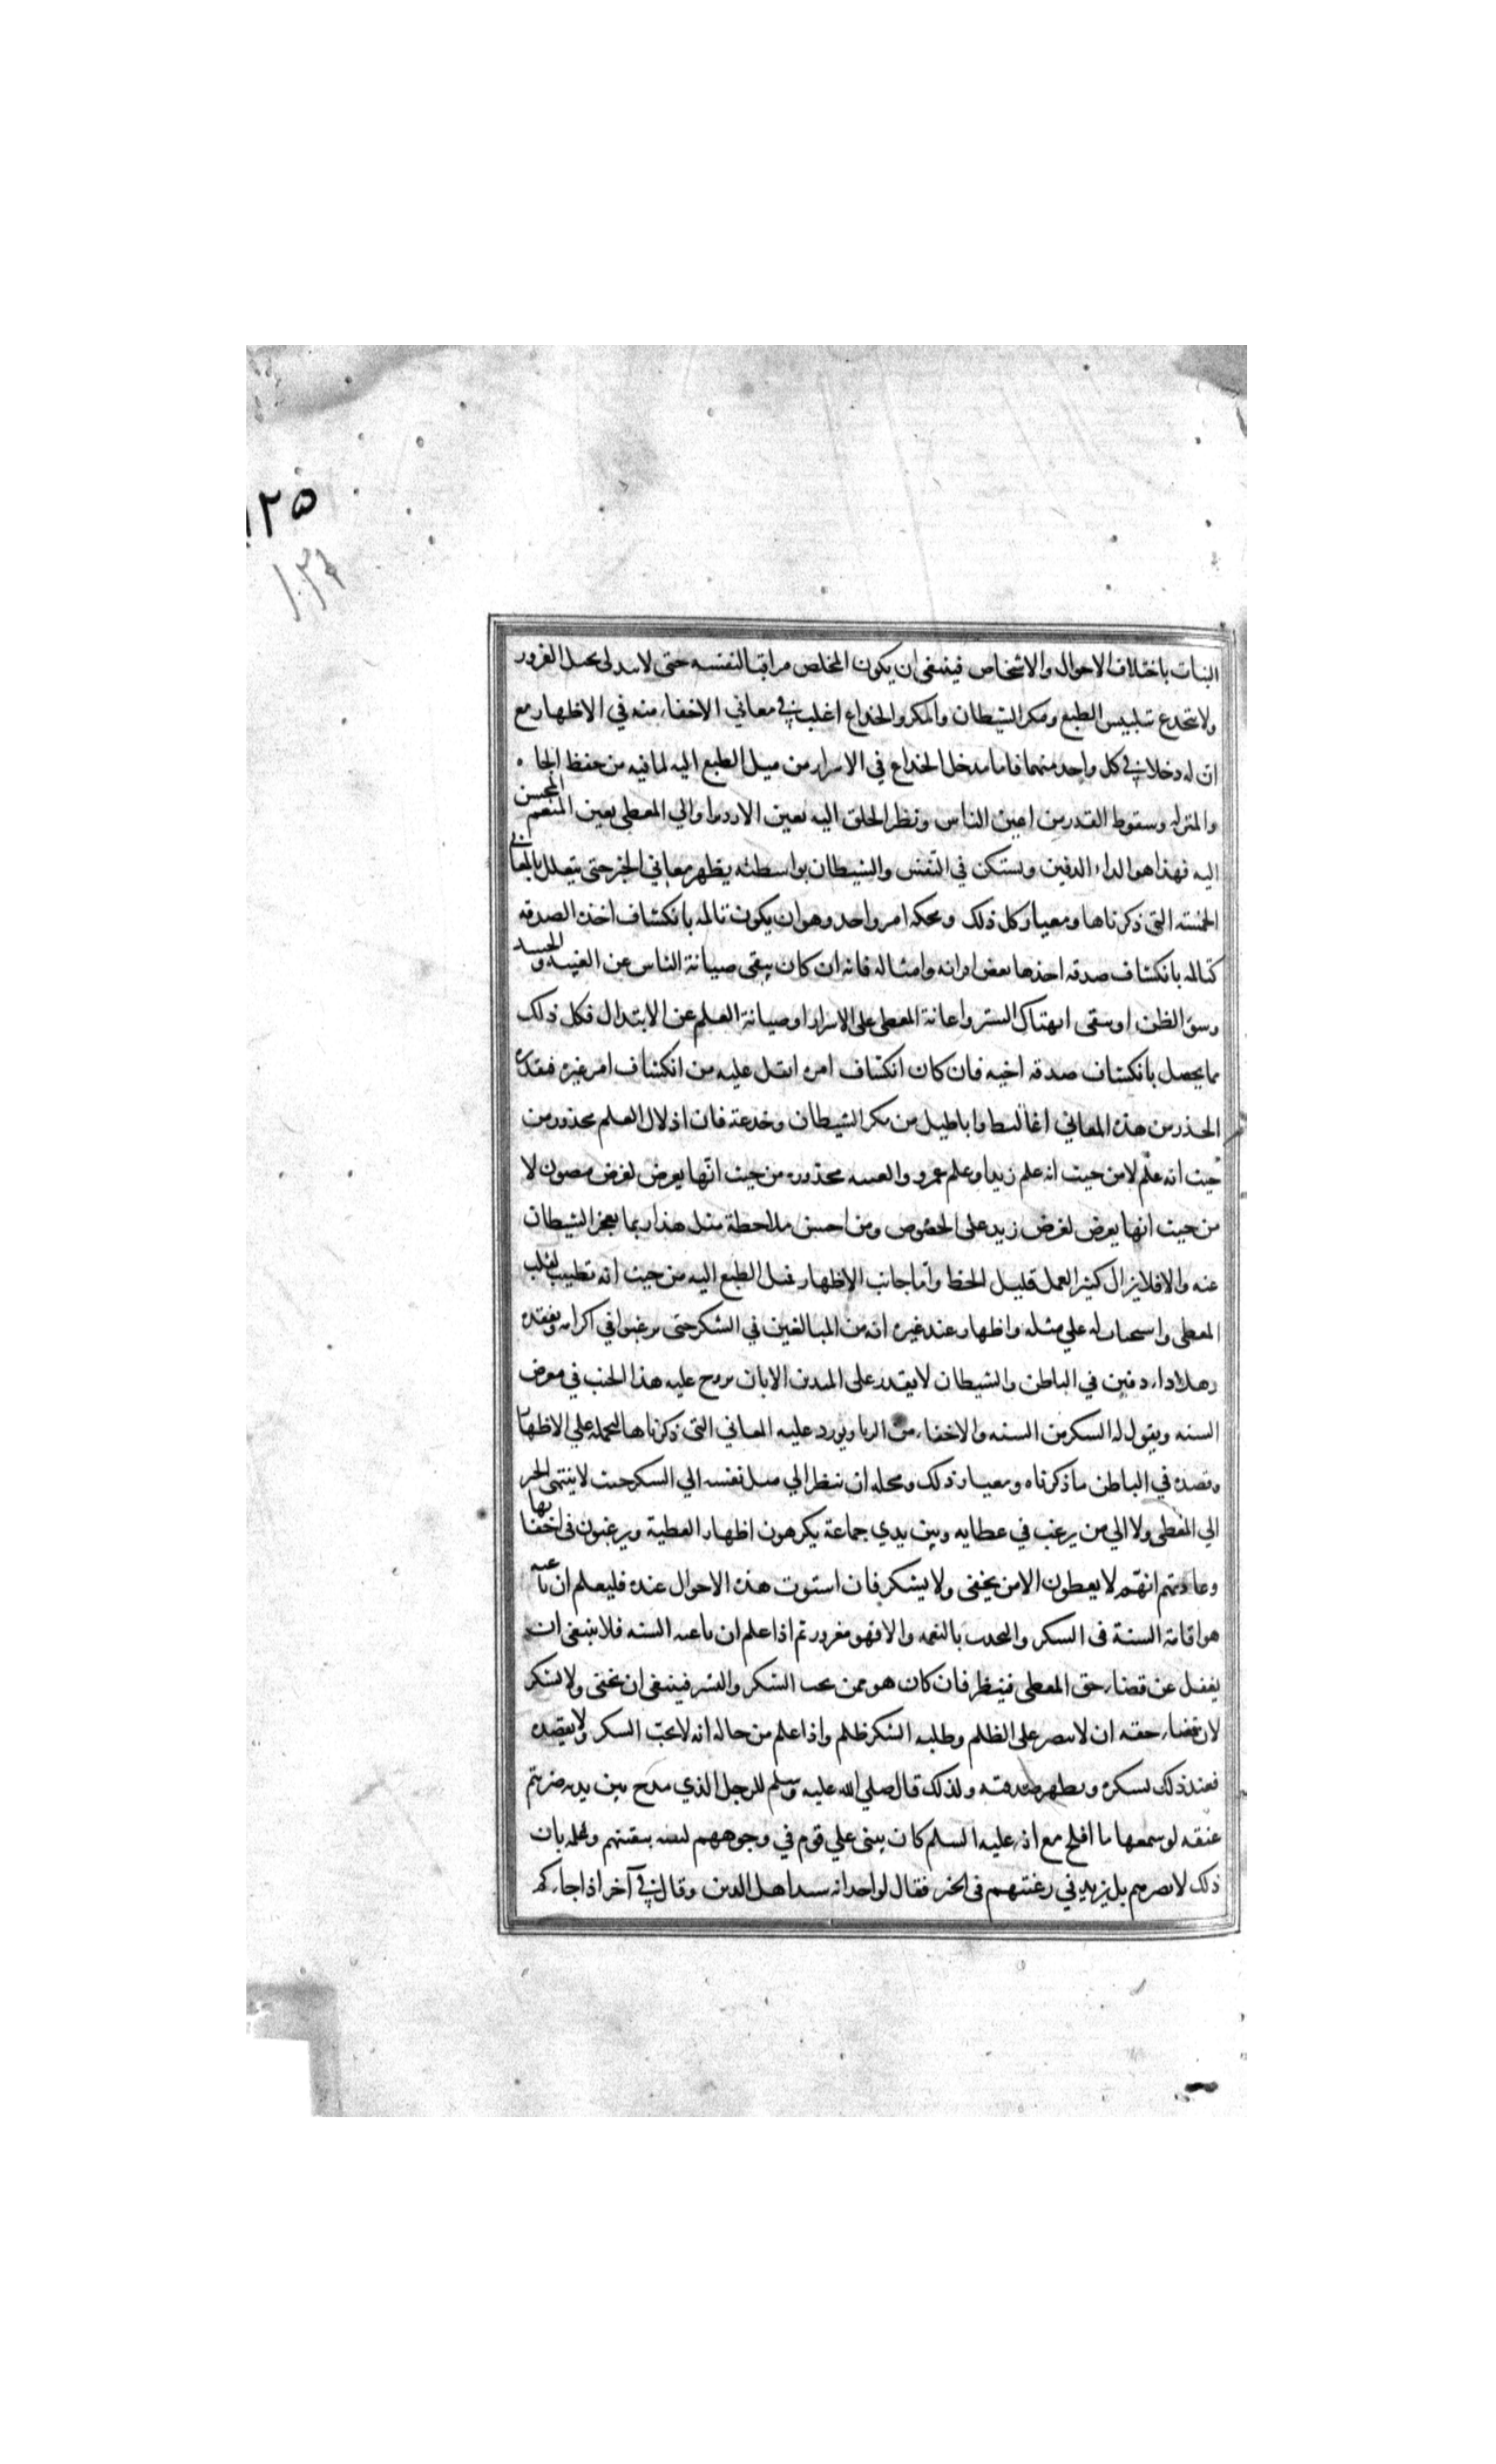 ١٢٥
النيات باختلاف الاحوال والاشخاص فينبغي ان يكون المخلص مراقبا لنفسه حتى لا يتدلى بحبل الغرور
ولا ينخدع بتلبيس الطبع ومكر الشيطان والمكر والخداع اغلب في معاني الاخفاء منه في الاظهار مع
ان له دخلا في كل واحد منهما فاما مدخل الخداع في الاسرار من ميل الطبع اليه لما فيه من حفظ الجاه
والمنزلة وسقوط القدر من اعين الناس ونظر الخلق اليه بعين الازدراء والي المعطي بعين المنعم المحسن
اليه فهذا هو الداء الدفين ويستكن في النفس والشيطان بواسطته يظهر معاني الخير حتى يتعلل بالمعاني
الخمسة التي ذكرناها ومعيار كل ذلك ومحكه امر واحد وهو ان يكون تالمه بانكشاف اخذه الصدقة
كتالمه بانكشاف صدقة اخذها بعض اقرانه وامثاله فانه ان كان يبقى صيانة الناس عن الغيبة والحسد
وسوء الظن او يتقى انهتاك الستر او اعانة المعطي على الاسرار او صيانة العلم عن الابتذال فكل ذلك
مما يحصل بانكشاف صدقة اخيه فان كان انكشاف امره اثقل عليه من انكشاف امر غيره فتقديره
الحذر من هذه المعاني اغاليط واباطيل من مكر الشيطان وخدعه فان اذلال العلم محذور من
حيث انه علم لا من حيث انه علم زيد او علم عمرو والغيبة محذورة من حيث انها يعرض لعرض مصون لا
من حيث انها يعرض لعرض زيد على الخصوص ومن احسن ملاحظة مثل هذا ربما يعجز الشيطان
عنه والا فلا يزال كثير العمل قليل الحظ واما جانب الاظهار فميل الطبع اليه من حيث انه تطييب لقلب
المعطي واستحثاث له علي مثله واظهار عند غيره انه من المبالغين في الشكر حتى يرغبوا في اكرامه وتفقده
وهذا داء دفين في الباطن والشيطان لا يقدر على المتدين الا بان يروج عليه هذا الخبث في معرض
السنة ويقول له الشكر من السنة والاخفاء من الريا ويورد عليه المعاني التي ذكرناها ليحمله علي الاظهار
وقصده في الباطن ما ذكرناه ومعيار ذلك ومحكه ان ينظر الي ميل نفسه الي الشكر حيث لا ينتهي الخبر
الي المعطي ولا الي من يرغب في عطايه وبين يدي جماعة يكرهون اظهار العطية ويرغبون في اخفائها
وعادتهم انهم لا يعطون الا من يخفي ولا يشكر فان استوت هذه الاحوال عنده فليعلم ان باعثه
هو اقامة السنة في الشكر والتحدث بالنعمة والا فهو مغرور ثم اذا علم ان باعثه السنة فلا ينبغي ان
يغفل عن قضاء حق المعطي فينظر فان كان هو ممن يحب الشكر والنشر فينبغي ان يخفي ولا يشكر
لان قضاء حقه ان لا ينصر على الظلم وطلبه الشكر ظلم واذا علم من حاله انه لا يحب الشكر ولا يقصده
فعند ذلك يشكره ويظهر صدقته ولذلك قال صلي الله عليه وسلم للرجل الذي مدح بين يديه ضربتم
عنقه لو سمعها ما افلح مع انه عليه السلم كان يثني علي قوم في وجوههم لثقته بيقينهم وعلمه بان
ذلك لا يضرهم بل يزيد في رغبتهم في الخير فقال لواحد انه سيد اهل الدين وقال في آخر اذا جاءكم